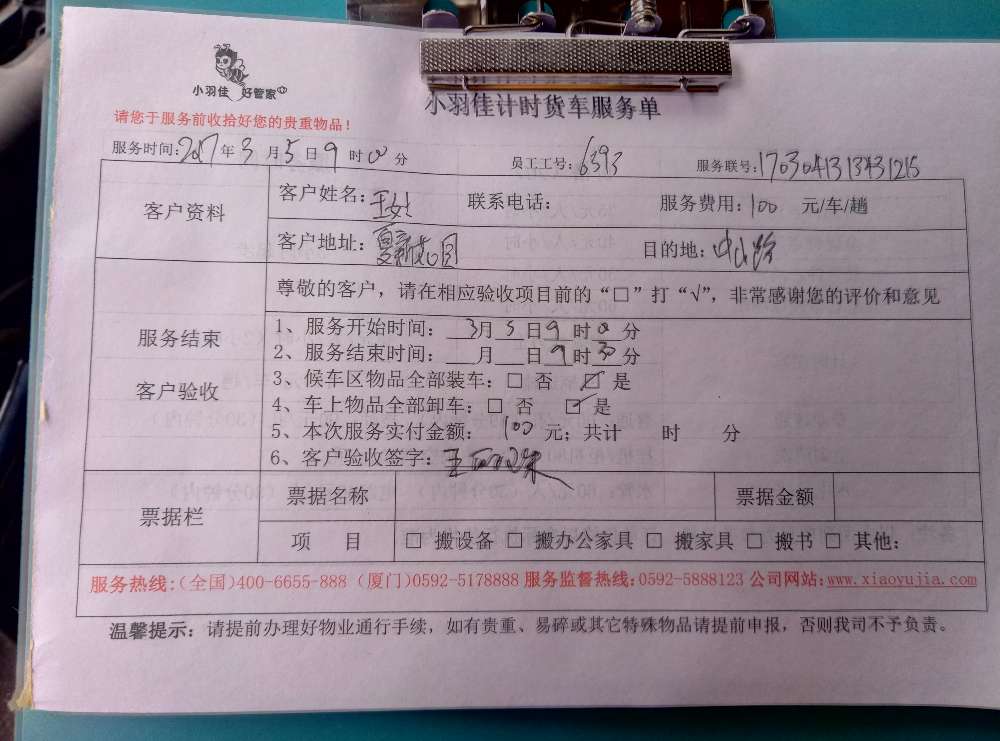 小羽佳 好管家
小羽佳计时货车服务单
请您于服务前收拾好您的贵重物品！
服务时间：2017年3月5日9时00分 员工工号：6393 服务联号：1703041313431215
客户资料
客户姓名：王女士 联系电话： 服务费用：100 元/车/趟
客户地址：夏新 目的地：中山路
尊敬的客户，请在相应验收项目前的“□”打“√”，非常感谢您的评价和意见
服务结束
客户验收
1、服务开始时间： 3月5日9时0分
2、服务结束时间： 月 日9时30分
3、候车区物品全部装车：□ 否 ☑ 是
4、车上物品全部卸车：□ 否 ☑ 是
5、本次服务实付金额： 100 元；共计 时 分
6、客户验收签字：王
票据栏
票据名称 票据金额
项 目 □ 搬设备 □ 搬办公家具 □ 搬家具 □ 搬书 □ 其他：
服务热线：(全国)400-6655-888 (厦门)0592-5178888 服务监督热线：0592-5888123 公司网站：www.xiaoyujia.com
温馨提示：请提前办理好物业通行手续，如有贵重、易碎或其它特殊物品请提前申报，否则我司不予负责。